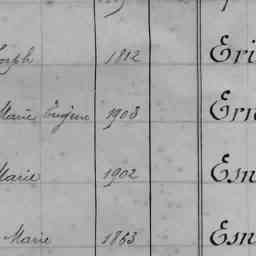 Joseph 1812 Eri
Marie Eugène 1903 Ern
Marie 1902 Esn
Marie 1863 Esn